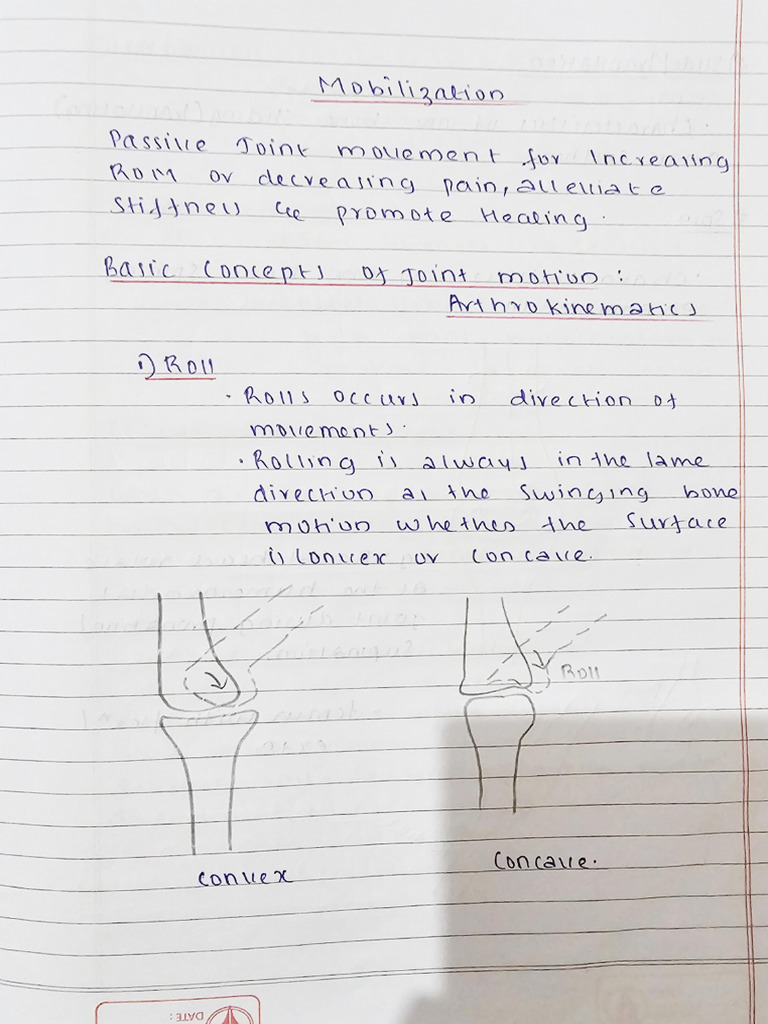 Mobilization
Passive Joint movement for Increasing
ROM or decreasing pain, alleviate
Stiffness & promote Healing.
Basic Concepts of Joint motion :
Arthrokinematics
1) Roll
· Rolls occurs in direction of
movements.
· Rolling is always in the same
direction as the swinging bone
motion whether the surface
is Convex or concave.
Roll
convex
Concave.
DATE :